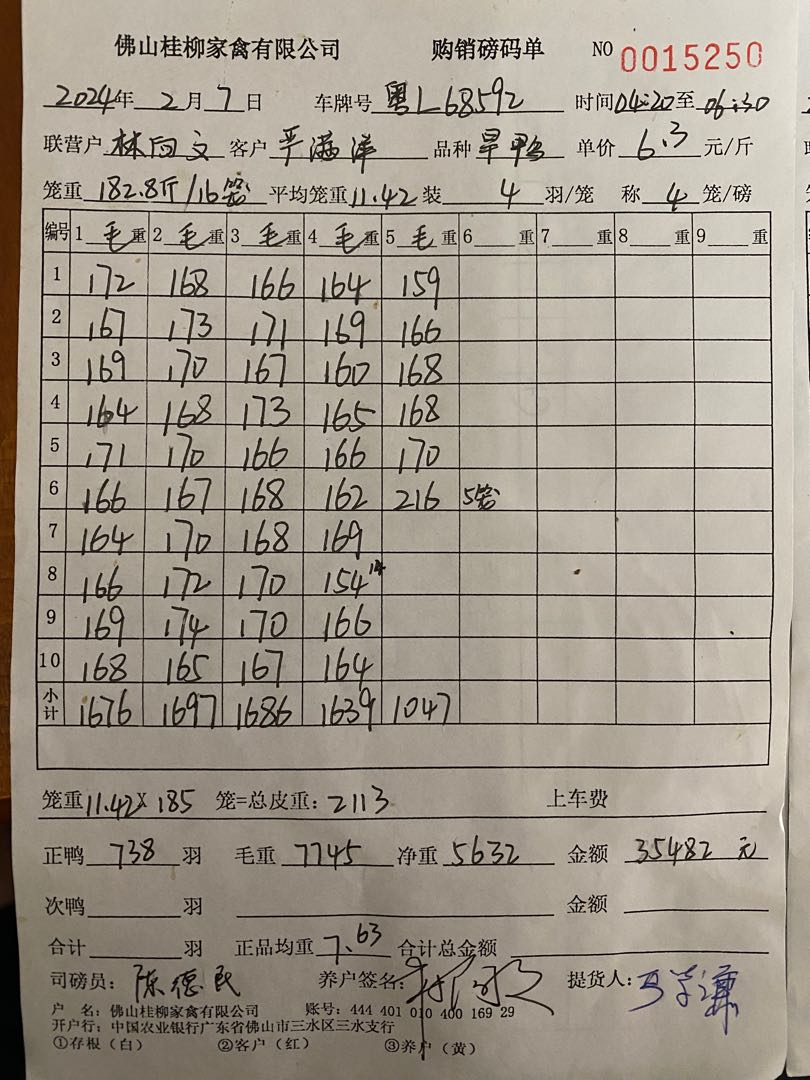 佛山桂柳家禽有限公司 购销磅码单 NO 0015250
2024年 2月 7日 车牌号 粤L68592 时间04:20至06:30
联营户 林向文 客户 严满洋 品种 旱鸭 单价 6.3 元/斤
笼重 182.8斤/16笼 平均笼重 11.42 装 4 羽/笼 称 4 笼/磅
编号 1 毛 重 2 毛 重 3 毛 重 4 毛 重 5 毛 重 6 重 7 重 8 重 9 重
1 172 168 166 164 159
2 167 173 171 169 166
3 169 170 167 160 168
4 164 168 173 165 168
5 171 170 166 166 170
6 166 167 168 162 216 5笼
7 164 170 168 169
8 166 172 170 154
9 169 174 170 166
10 168 165 167 164
小计 1676 1697 1686 1639 1047
笼重 11.42 X 185 笼=总皮重: 2113 上车费
正鸭 738 羽 毛重 7745 净重 5632 金额 35482 元
次鸭 羽 金额
合计 羽 正品均重 7.63 合计总金额
司磅员: 陈德民 养户签名: 提货人:
户 名: 佛山桂柳家禽有限公司 账号: 444 401 010 400 169 29
开户行: 中国农业银行广东省佛山市三水区三水支行
①存根(白) ②客户(红) ③养户(黄)